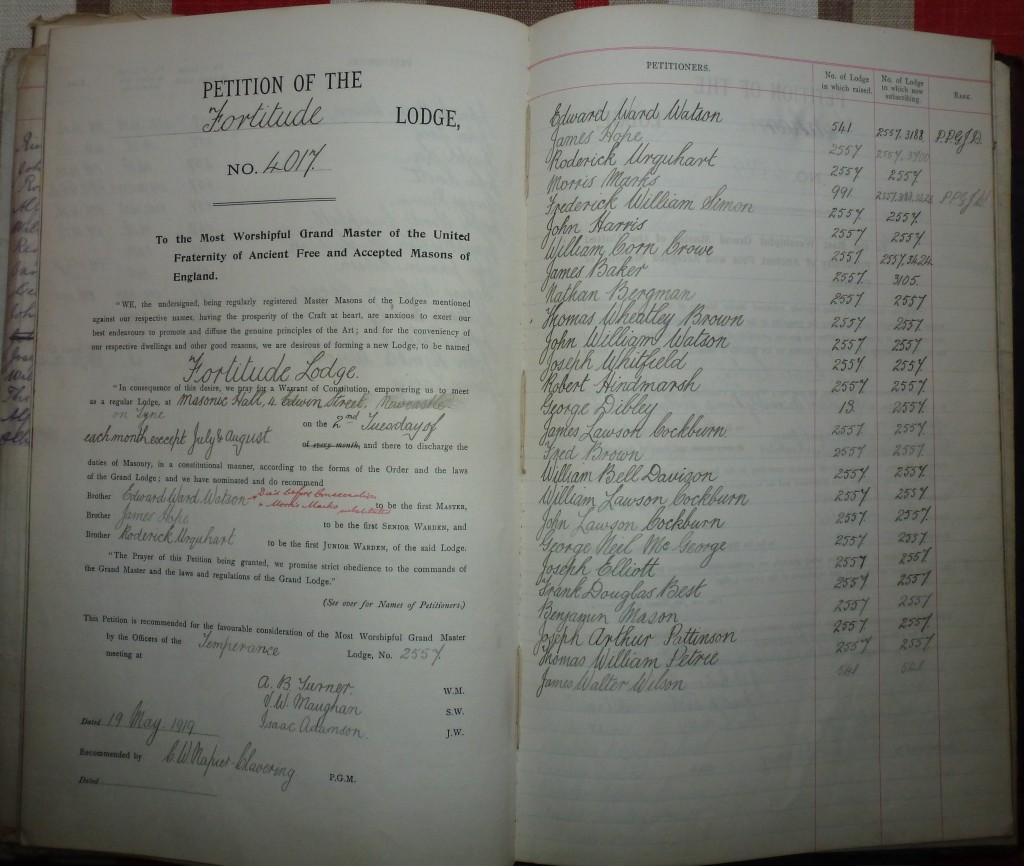 PETITION OF THE
Fortitude LODGE,
NO. 4017.
To the Most Worshipful Grand Master of the United
Fraternity of Ancient Free and Accepted Masons of
England.
"WE, the undersigned, being regularly registered Master Masons of the Lodges mentioned
against our respective names, having the prosperity of the Craft at heart, are anxious to exert our
best endeavours to promote and diffuse the genuine principles of the Art; and for the conveniency of
our respective dwellings and other good reasons, we are desirous of forming a new Lodge, to be named
Fortitude Lodge.
"In consequence of this desire, we pray for a Warrant of Constitution, empowering us to meet
as a regular Lodge, at Masonic Hall, 4 Edwin Street, Newcastle
on Tyne on the 2nd Tuesday of
each month except July & August of every month, and there to discharge the
duties of Masonry, in a constitutional manner, according to the forms of the Order and the laws
of the Grand Lodge; and we have nominated and do recommend
Brother Edward Ward Watson Died before Consecration to be the first MASTER,
Morris Marks substituted
Brother James Hope to be the first SENIOR WARDEN, and
Brother Roderick Urquhart to be the first JUNIOR WARDEN, of the said Lodge.
"The Prayer of this Petition being granted, we promise strict obedience to the commands of
the Grand Master and the laws and regulations of the Grand Lodge."
(See over for Names of Petitioners.)
This Petition is recommended for the favourable consideration of the Most Worshipful Grand Master
by the Officers of the Temperance Lodge, No. 2557.
meeting at
A. B. Turner. W.M.
J. W. Maughan S.W.
Isaac Adamson. J.W.
Dated 19 May 1919
Recommended by C. W. Napier-Clavering P.G.M.
Dated
PETITIONERS. No. of Lodge in which raised. No. of Lodge in which now subscribing. RANK.
Edward Ward Watson 541 2557. 3188 P.P.G.J.D.
James Hope 2557 2557.3700
Roderick Urquhart 2557 2557
Morris Marks 991 2557. P.P.G.J.
Frederick William Simon 2557 2557.
John Harris 2557 2557
William Corn Crowe 2557 2557.3424
James Baker 2557. 3105.
Nathan Bergman 2557 2557
Thomas Wheatley Brown 2557 2557.
John William Watson 2557 2557
Joseph Whitfield 2557 2557.
Robert Hindmarsh 2557 2557.
George Dibley 13. 2557.
James Lawson Cockburn 2557 2557.
Fred Brown 2557 2557.
William Bell Davison 2557 2557.
William Lawson Cockburn 2557. 2557.
John Lawson Cockburn 2557. 2557.
George Neil McGeorge 2557 2557
Joseph Elliott 2557 2557.
Frank Douglas Best 2557 2557.
Benjamin Mason 2557 2557
Joseph Arthur Pattinson 2557. 2557.
Thomas William Petrie 2557 2557.
James Walter Wilson 541 541